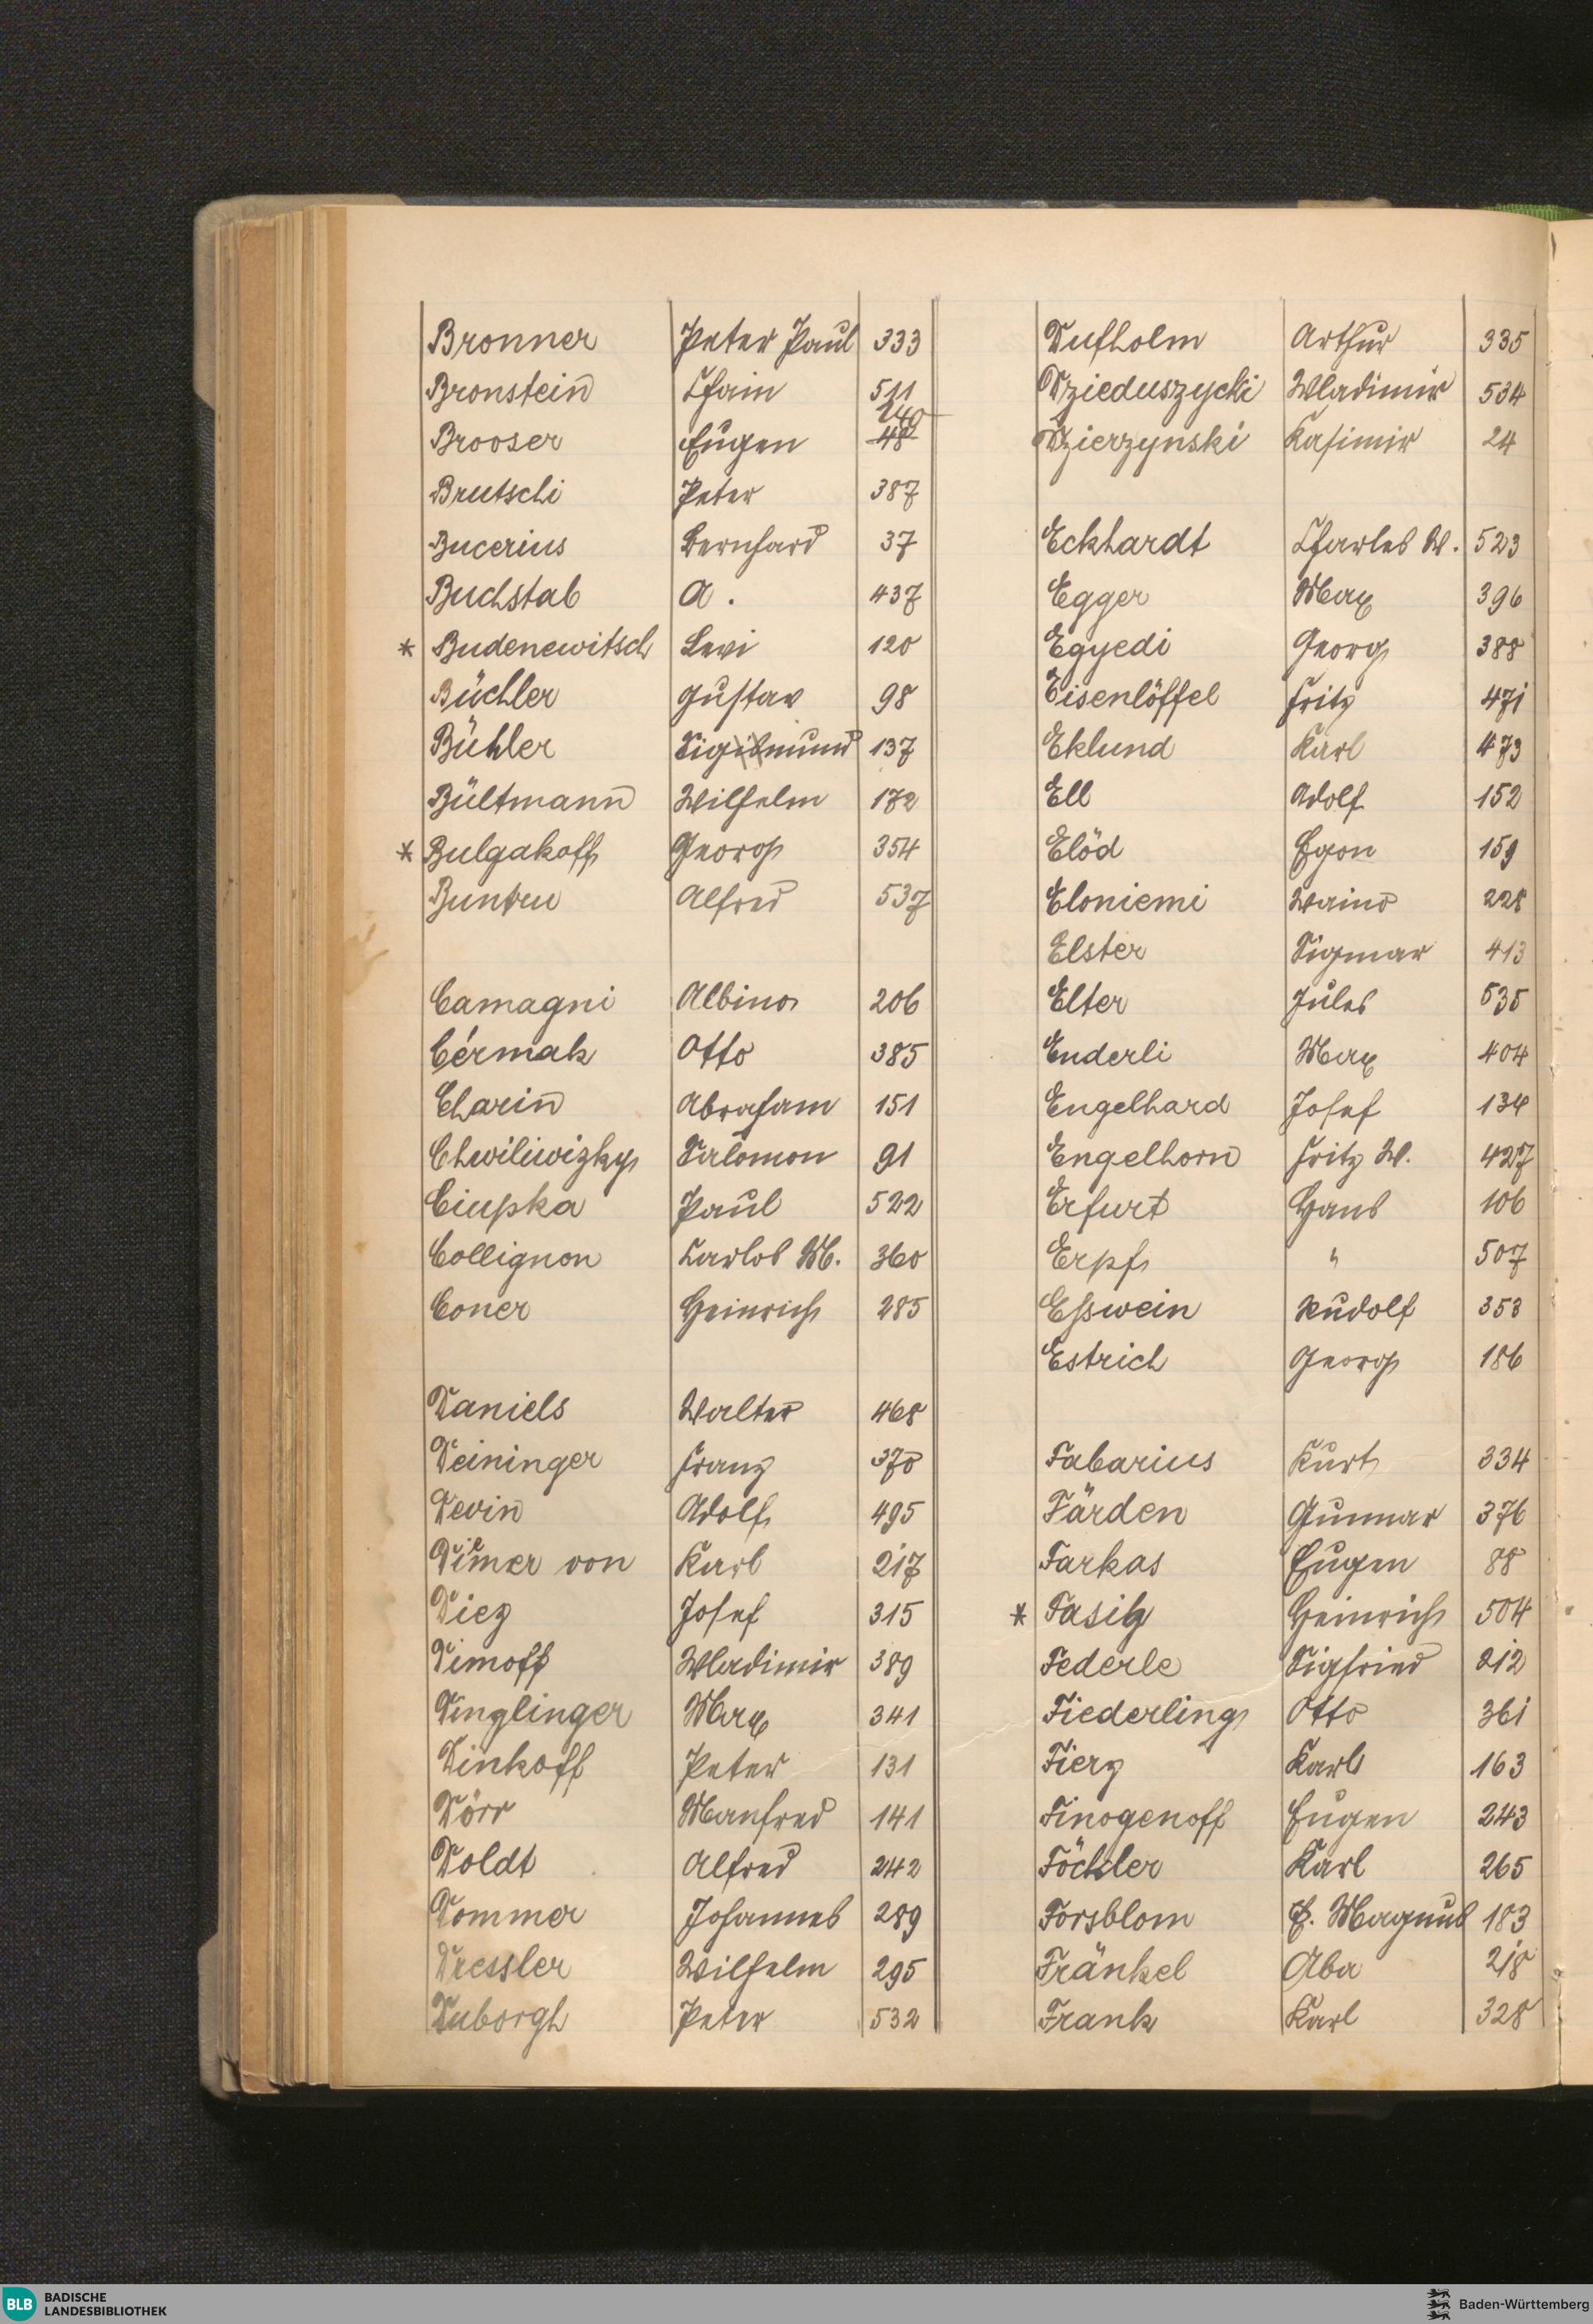 Bronner Peter Paul 333
Bronstein Chain 511
Brooser Eugen 240 48
Brutschi Peter 387
Bucerius Bernhard 37
Buchstab A. 437
* Budenewitsch Levi 120
Büchler Gustav 98
Bühler Sigismund 137
Bültmann Wilhelm 172
* Bulgakoff Georg 354
Buntru Alfred 537
Camagni Albino 206
Cérmak Otto 385
Charin Abraham 151
Chwiliwizky Salomon 91
Ciupka Paul 522
Collignon Carlos M. 360
Coner Heinrich 285
Daniels Walter 468
Deininger Franz 370
Devin Adolf 495
von Karl 217
Diez Josef 315
Dimoff Wladimir 389
Dinglinger Max 341
Dinkoff Peter 131
Dörr Manfred 141
Doldt Alfred 242
Dommer Johannes 289
Dressler Wilhelm 295
Duborgh Peter 532
Dufholm Arthur 335
Dzieduszycki Wladimir 534
Dzierzynski Kasimir 24
Eckhardt Charles W. 523
Egger Max 396
Egyedi Georg 388
Eisenlöffel Fritz 471
Eklund Karl 473
Ell Adolf 152
Elöd Egon 159
Eloniemi Waino 228
Elster Sigmar 413
Elter Jules 535
Enderli Max 404
Engelhard Josef 134
Engelhorn Fritz W. 427
Erfurt Hans 106
Erpf " 507
Eſswein Rudolf 353
Estrich Georg 186
Fabarius Kurt 334
Färden Gunnar 376
Farkas Eugen 88
* Heinrich 504
Federle Sigfried 212
Fiederling Otto 361
Fierz Karl 163
Finogenoff Eugen 243
Föckler Karl 265
Forsblom E. Magnus 183
Fränkel Aba 218
Frank Karl 328
BLB BADISCHE
LANDESBIBLIOTHEK
Baden-Württemberg